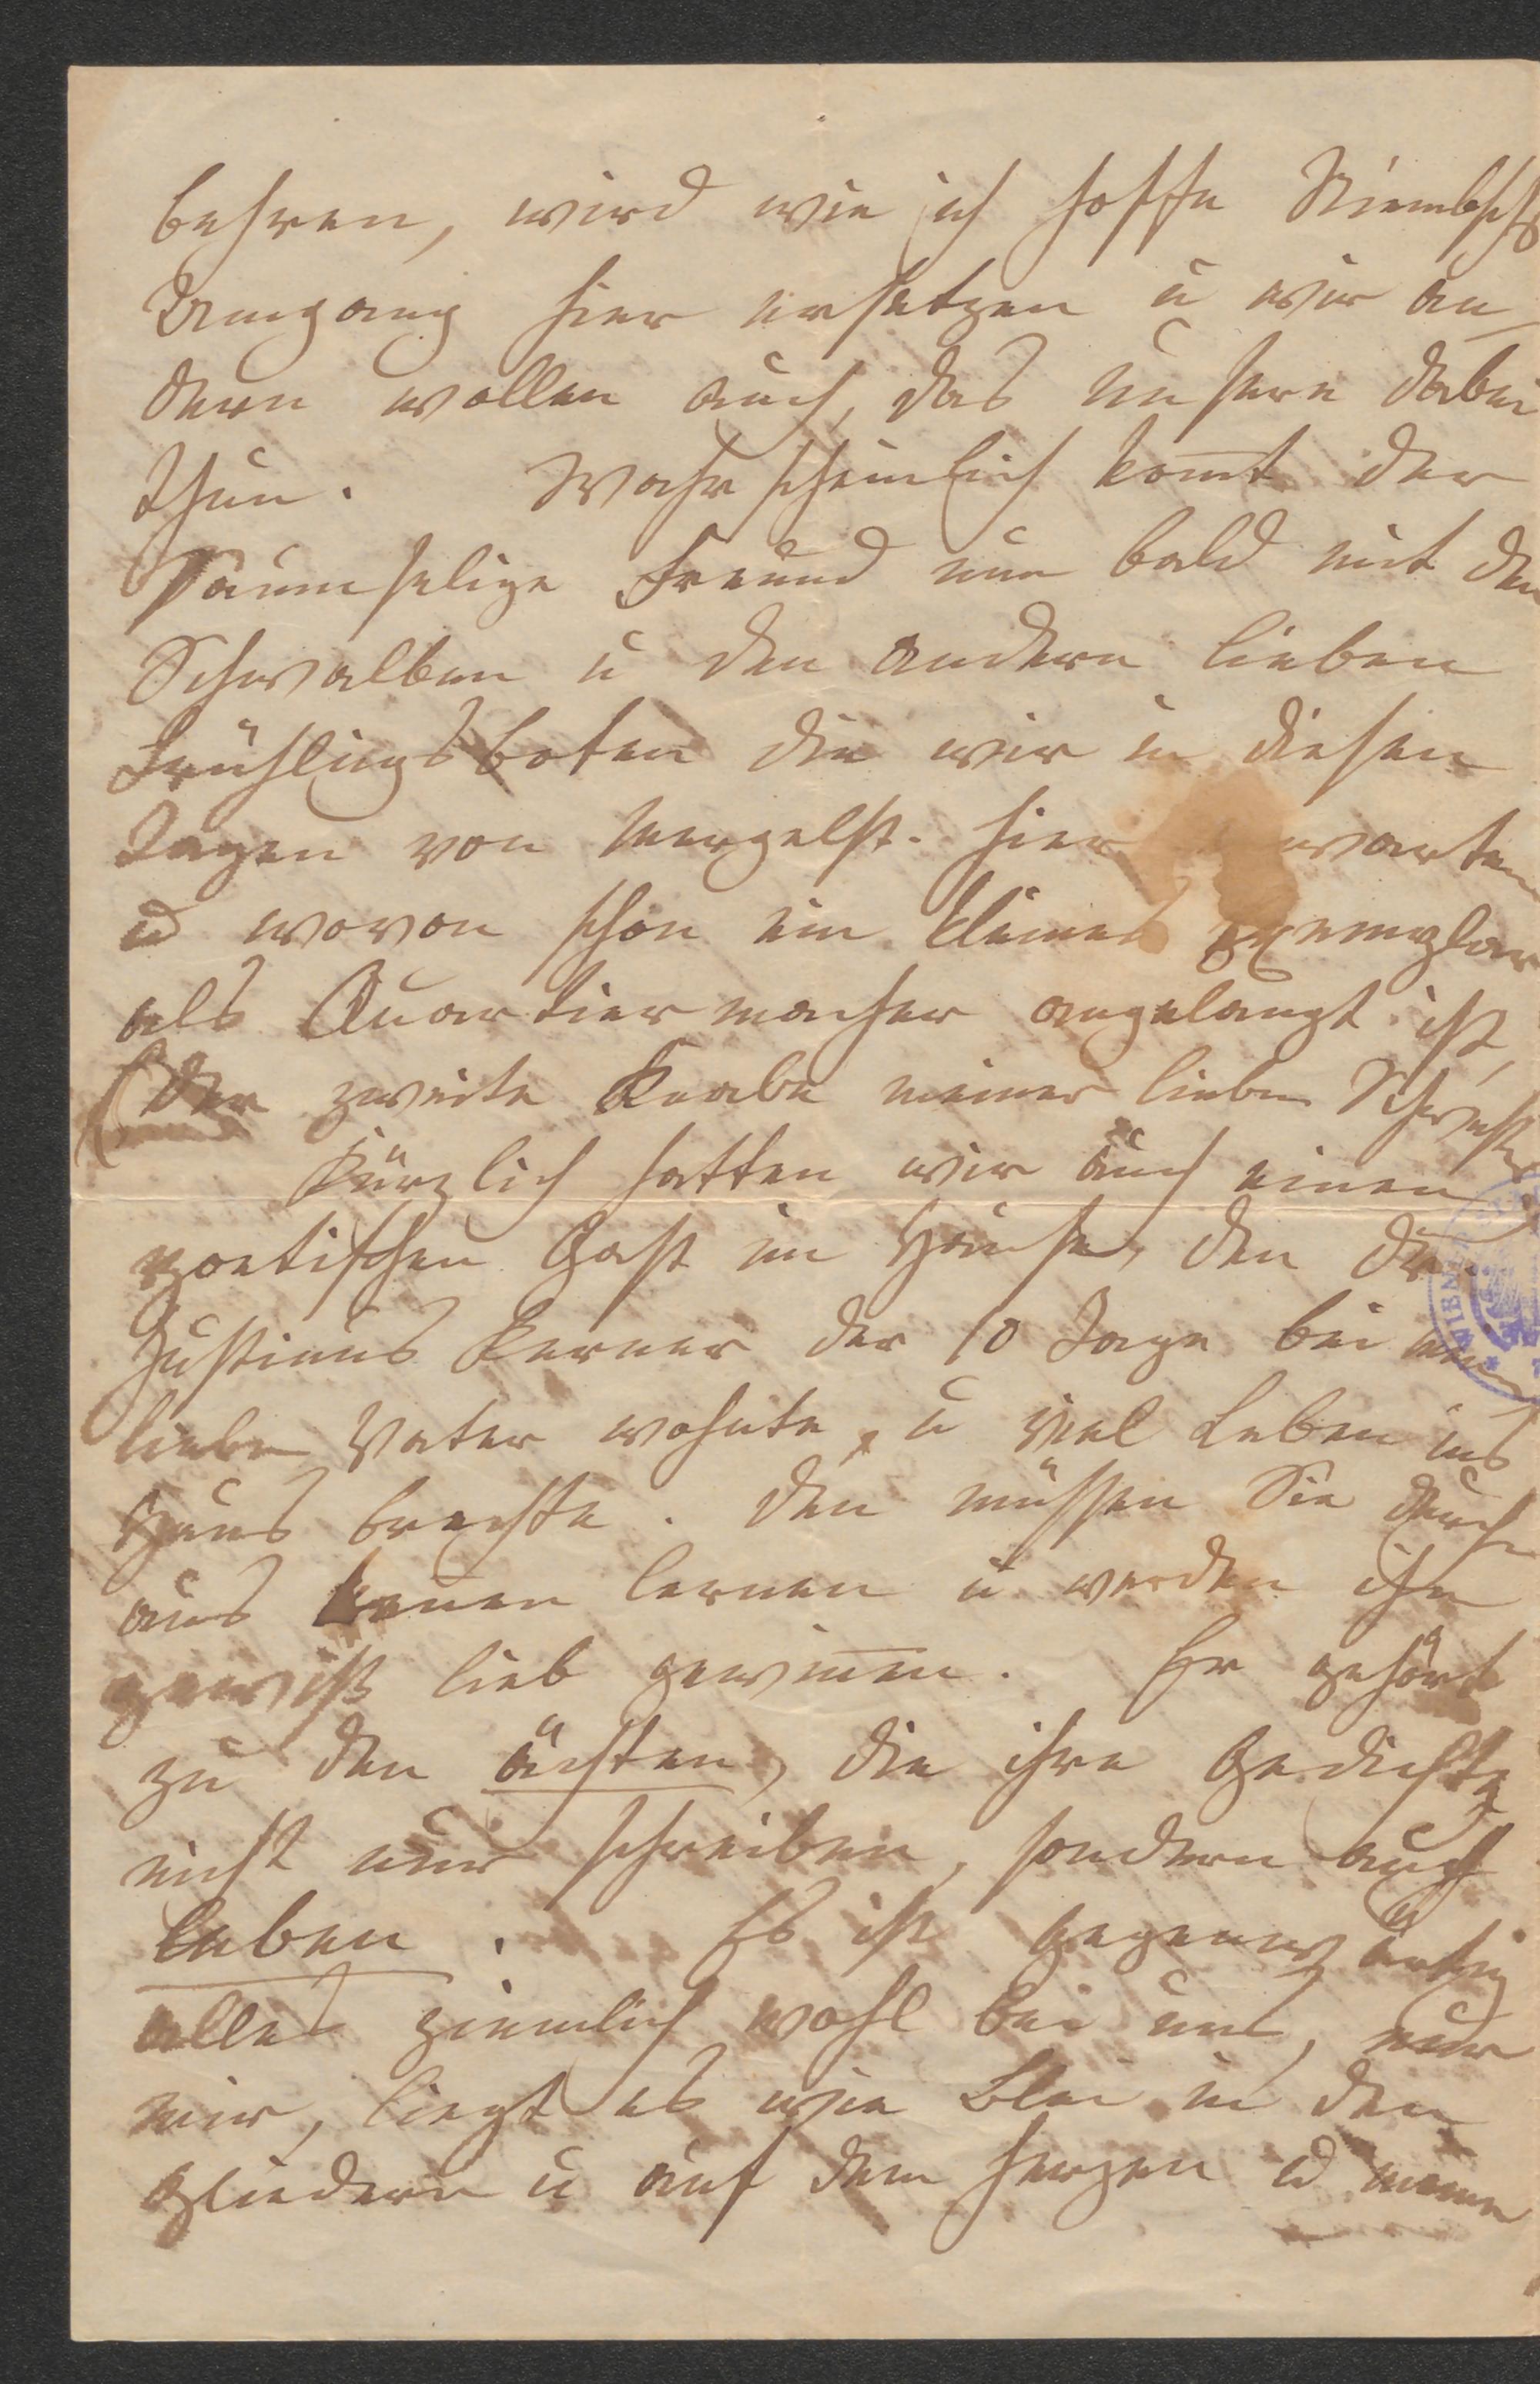 behren, wird wie ich hoffe Niembschs
Umgang hier ersetzen u wir an
dern wollen auch, das unsere dabei
thun. Wahrscheinlich kom̄t der
saumselige Freund nun bald mit den
Schwalben u den andern lieben
Frühlingsboten die wir in diesen
Tagen von Mergelst. hier erwarten
u wovon schon ein kleines Exemplar
als Quartiermacher angelangt ist,
(der zweite Knabe meiner lieben Schwester
Kürzlich hatten wir auch einen
poetischen Gast im Hause, den Dr.
Justinus Kerner der 10 Tage bei
lieben Vater wohnte, u viel Leben ins
Haus brachte. Den müssen Sie durch
aus kennen lernen u werden ihn
gewiß lieb gewin̄en. Er gehört
zu den ächten, die ihre Gedichte
nicht nur schreiben, sondern auch
leben. Es ist gegenwärtig
alles ziemlich wohl bei uns, nur
mir, liegt es wie Blei in den
Gliedern u auf dem Herzen u meine